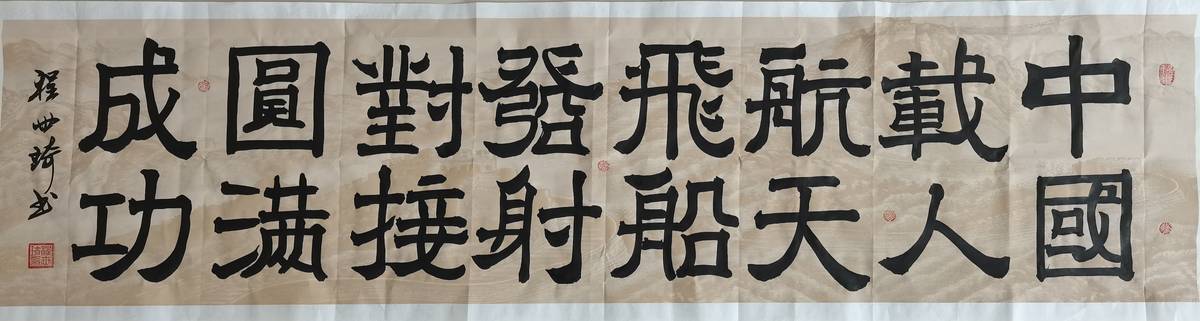 中國
載人
航天
飛船
發射
對接
圓满
成功
程世琦书